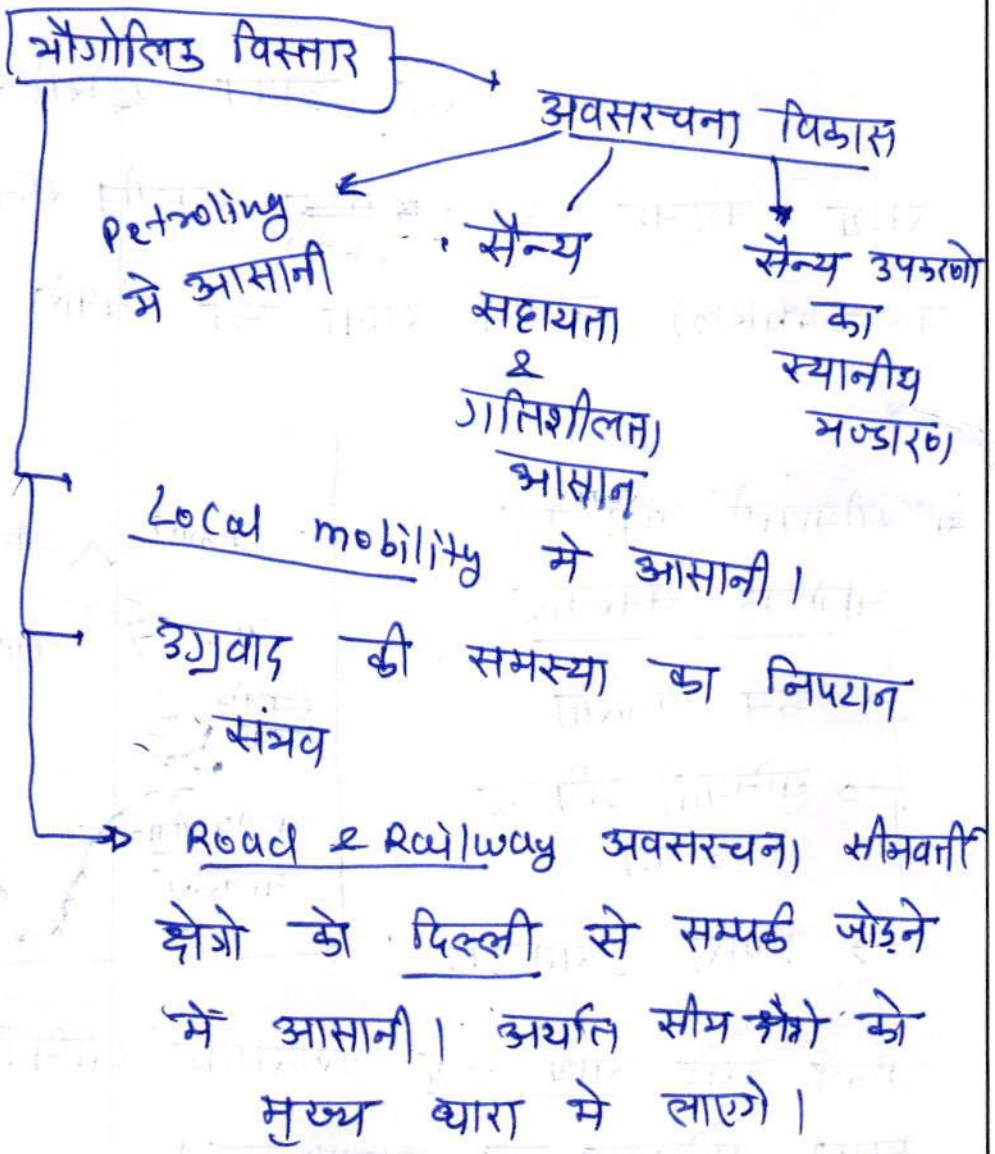 भौगोलिक विस्तार
अवसरचना विकास
Petroling
में आसानी
सैन्य
सहायता
&
गतिशीलता
आसान
सैन्य उपकरणो
का
स्थानीय
भण्डारण
Local mobility मे आसानी।
उग्रवाद की समस्या का निपटान
संभव
Road & Railway अवसरचना सीमवर्ती
क्षेत्रो को दिल्ली से सम्पर्क जोड़ने
में आसानी। अर्थात सीम क्षेत्रो को
मुख्य धारा मे लाएगे।